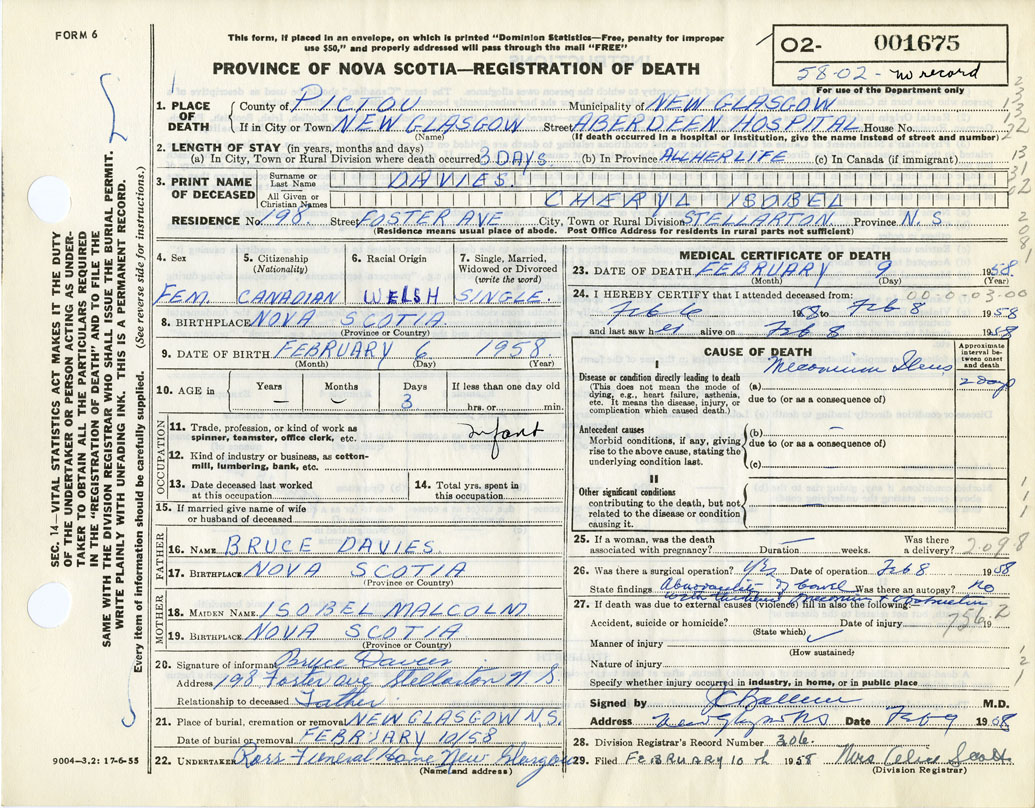 FORM 6
This form, if placed in an envelope, on which is printed "Dominion Statistics—Free, penalty for improper
use $50," and properly addressed will pass through the mail "FREE"
O2- 001675
58-02- no record
For use of the Department only
PROVINCE OF NOVA SCOTIA—REGISTRATION OF DEATH
1. PLACE OF DEATH
County of PICTOU Municipality of NEW GLASGOW
If in City or Town NEW GLASGOW Street ABERDEEN HOSPITAL House No.
(Name) (If death occurred in a hospital or institution, give the name instead of street and number)
2. LENGTH OF STAY (in years, months and days)
(a) In City, Town or Rural Division where death occurred 3 DAYS (b) In Province ALL HER LIFE (c) In Canada (if immigrant)
3. PRINT NAME OF DECEASED
Surname or Last Name DAVIES.
All Given or Christian Names CHERYL ISOBEL
RESIDENCE No. 198. Street FOSTER AVE City, Town or Rural Division STELLARTON Province N. S
(Residence means usual place of abode. Post Office Address for residents in rural parts not sufficient)
4. Sex
FEM.
5. Citizenship
(Nationality)
CANADIAN
6. Racial Origin
WELSH
7. Single, Married,
Widowed or Divorced
(write the word)
SINGLE.
8. BIRTHPLACE NOVA SCOTIA.
(Province or Country)
9. DATE OF BIRTH FEBRUARY 6. 1958.
(Month) (Day) (Year)
10. AGE in
Years Months Days If less than one day old
— — 3 hrs. or min.
OCCUPATION
11. Trade, profession, or kind of work as
spinner, teamster, office clerk, etc. Infant
12. Kind of industry or business, as cotton-
mill, lumbering, bank, etc.
13. Date deceased last worked
at this occupation
14. Total yrs. spent in
this occupation
15. If married give name of wife
or husband of deceased
FATHER
16. NAME BRUCE DAVIES.
17. BIRTHPLACE NOVA SCOTIA
(Province or Country)
MOTHER
18. MAIDEN NAME ISOBEL MALCOLM
19. BIRTHPLACE NOVA SCOTIA
(Province or Country)
20. Signature of informant Bruce Davies
Address 198 Foster ave Stellarton N S.
Relationship to deceased Father
21. Place of burial, cremation or removal NEW GLASGOW N.S.
Date of burial or removal FEBRUARY 10/58
22. UNDERTAKER Ross Funeral Home New Glasgow
(Name and address)
MEDICAL CERTIFICATE OF DEATH
23. DATE OF DEATH FEBRUARY 9 1958.
(Month) (Day) (Year)
24. I HEREBY CERTIFY that I attended deceased from: 00.0.03.00
Feb 6 1958 to Feb 8 1958
and last saw her alive on Feb 8 1958
CAUSE OF DEATH
Approximate
interval be-
tween onset
and death
I
Disease or condition directly leading to death
(This does not mean the mode of
dying, e.g., heart failure, asthenia,
etc. It means the disease, injury, or
complication which caused death.)
(a) Meconium Ileus 2 Days
due to (or as a consequence of)
Antecedent causes
Morbid conditions, if any, giving
rise to the above cause, stating the
underlying condition last.
(b) —
due to (or as a consequence of)
(c)
II
Other significant conditions
contributing to the death, but not
related to the disease or condition
causing it.
25. If a woman, was the death
associated with pregnancy? — Duration weeks. Was there
a delivery? 2098
26. Was there a surgical operation? Yes Date of operation Feb 8 1958
State findings of bowel Was there an autopsy? No
27. If death was due to external causes (violence) fill in also the following:
Accident, suicide or homicide? Date of injury 19
(State which)
756.2
Manner of injury
(How sustained)
Nature of injury
Specify whether injury occurred in industry, in home, or in public place
Signed by M.D.
Address New Glasgow NS Date Feb 9 1958
28. Division Registrar's Record Number 306.
29. Filed FEBRUARY 10th 1958 Mrs Scott
(Division Registrar)
SEC. 14—VITAL STATISTICS ACT MAKES IT THE DUTY
OF THE UNDERTAKER OR PERSON ACTING AS UNDER-
TAKER TO OBTAIN ALL THE PARTICULARS REQUIRED
IN THE "REGISTRATION OF DEATH" AND TO FILE THE
SAME WITH THE DIVISION REGISTRAR WHO SHALL ISSUE THE BURIAL PERMIT.
WRITE PLAINLY WITH UNFADING INK. THIS IS A PERMANENT RECORD.
Every item of information should be carefully supplied. (See reverse side for instructions.)
9004—3.2: 17-6-55